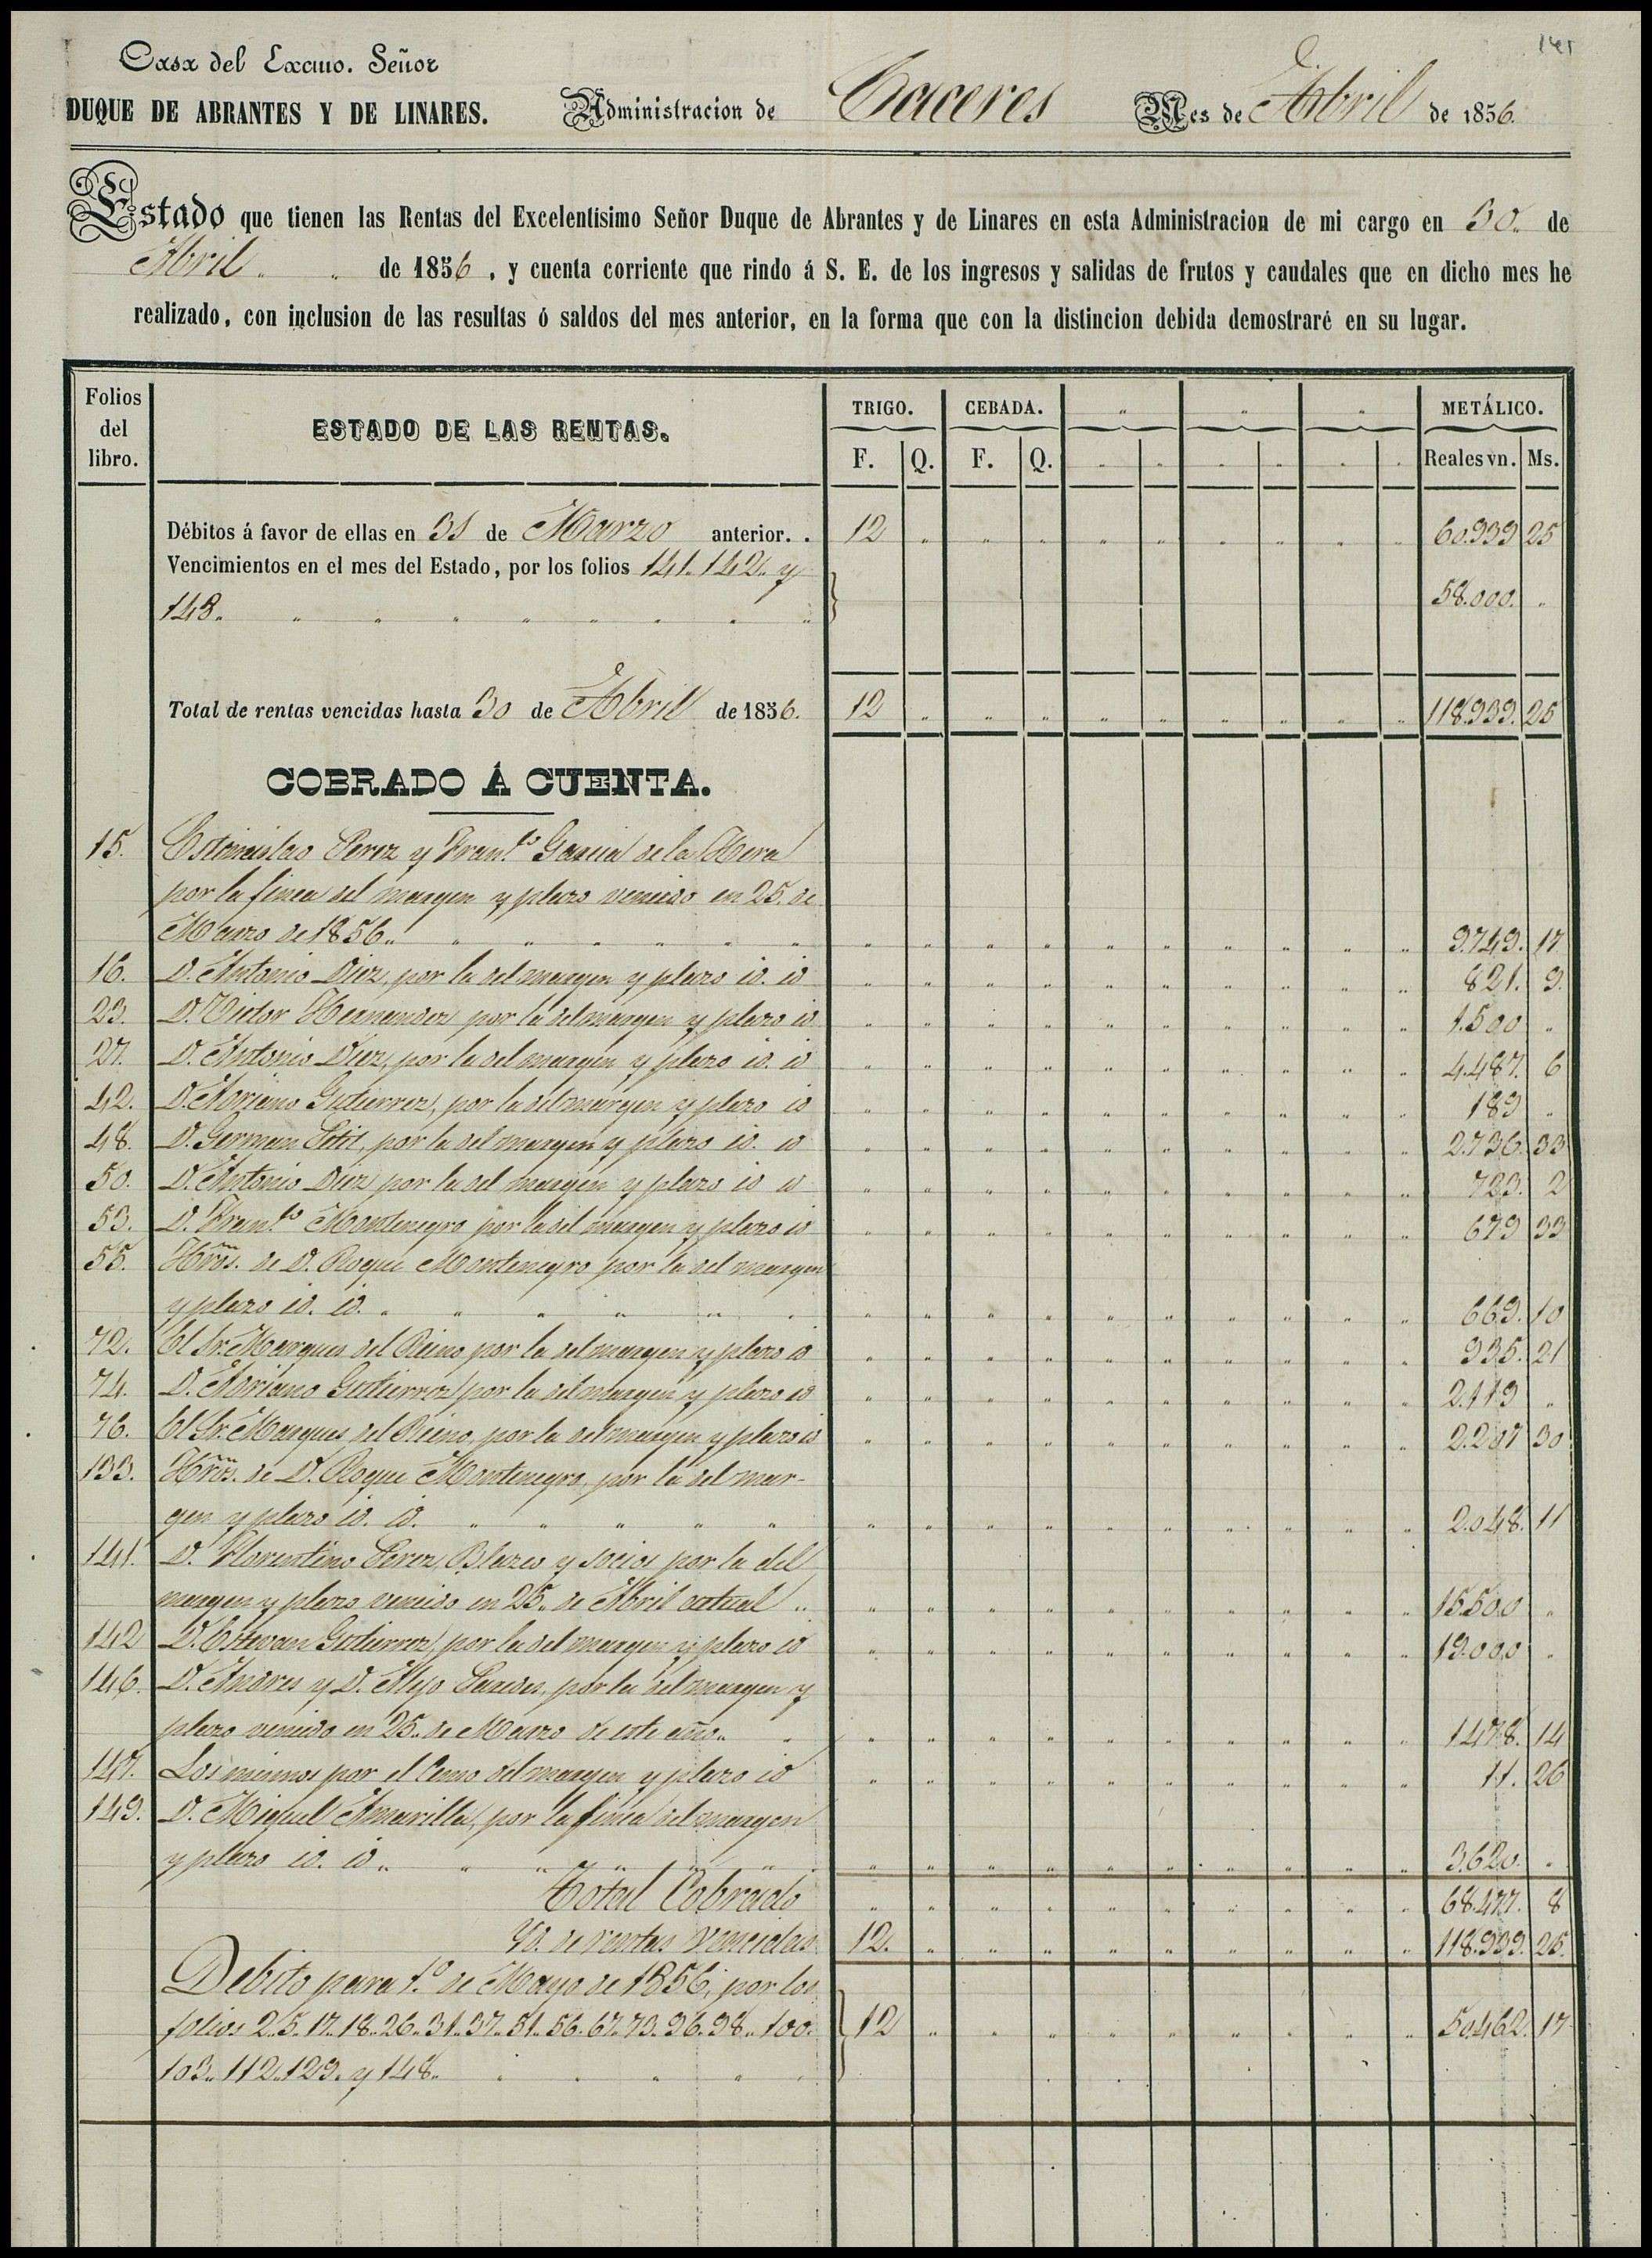 141
Casa del Excmo. Señor
DUQUE DE ABRANTES Y DE LINARES. Administracion de Caceres Mes de Abril de 1856.
Estado que tienen las Rentas del Excelentísimo Señor Duque de Abrantes y de Linares en esta Administracion de mi cargo en 30 de
Abril de 1856, y cuenta corriente que rindo á S. E. de los ingresos y salidas de frutos y caudales que en dicho mes he
realizado, con inclusion de las resultas ó saldos del mes anterior, en la forma que con la distincion debida demostraré en su lugar.
Folios del libro. ESTADO DE LAS RENTAS. TRIGO. CEBADA. " " " METÁLICO.
F. Q. F. Q. Reales vn. Ms.
Débitos á favor de ellas en 31 de Marzo anterior. . 12 " 60.939 25
Vencimientos en el mes del Estado, por los folios 141. 142. y
143. 58.000. "
Total de rentas vencidas hasta 30 de Abril de 1856. 12 " 118.939. 25
COBRADO Á CUENTA.
15. Estanislao Perez y Fran.co Garcia de la Mera
por la finca del margen y plazo vencido en 25. de
Marzo de 1856. 9.749. 17
16. D. Antonio Diez, por la del margen y plazo id. id 821. 9.
23. D. Victor Hernandez por la del margen y plazo id. 1.500 "
27. D. Antonio Diez, por la del margen y plazo id. id 4.487. 6
42. D. Adriano Gutierrez, por la del margen y plazo id 189 "
48. D. German Petit, por la del margen y plazo id. id 2.736. 33
50. D. Antonio Diez por la del margen y plazo id id 723. 2
53. D. Fran.co Montenegro por la del margen y plazo id 679 33
55. Hros. de D. Roque Montenegro por la del margen
y plazo id. id. 669. 10
72. El Sr. Marques del Reino por la del margen y plazo id 935. 21
74. D. Adriano Gutierrez por la del margen y plazo id 2.119 "
76. El Sr. Marques del Reino, por la del margen y plazo id 2.207 30
133. Hros. de D. Roque Montenegro, por la del mar-
gen y plazo id. id. 2.048. 11
141. D. Florentino Perez, Blazco y socios por la del
margen y plazo vencido en 25. de Abril actual 15.500 "
142 D. Estevan Gutierrez, por la del margen y plazo id 19.000 "
146. D. Andres y D. Alejo Paredes, por la del margen y
plazo vencido en 25. de Marzo de este año. 1.478. 14
147. Los mismos por el Censo del margen y plazo id 11. 26
149. D. Miguel Amarilla, por la finca del margen
y plazo id. id. 3.620. "
Total Cobrado 68.477. 8
Yd. de rentas vencidas 12. " 118.939. 25.
Debito para 1.º de Mayo de 1856, por los
folios 2. 5. 17. 18. 26. 31. 37. 51. 56. 67. 73. 96. 98. 100. 12 " 50.462. 17
103. 112. 129. y 148.